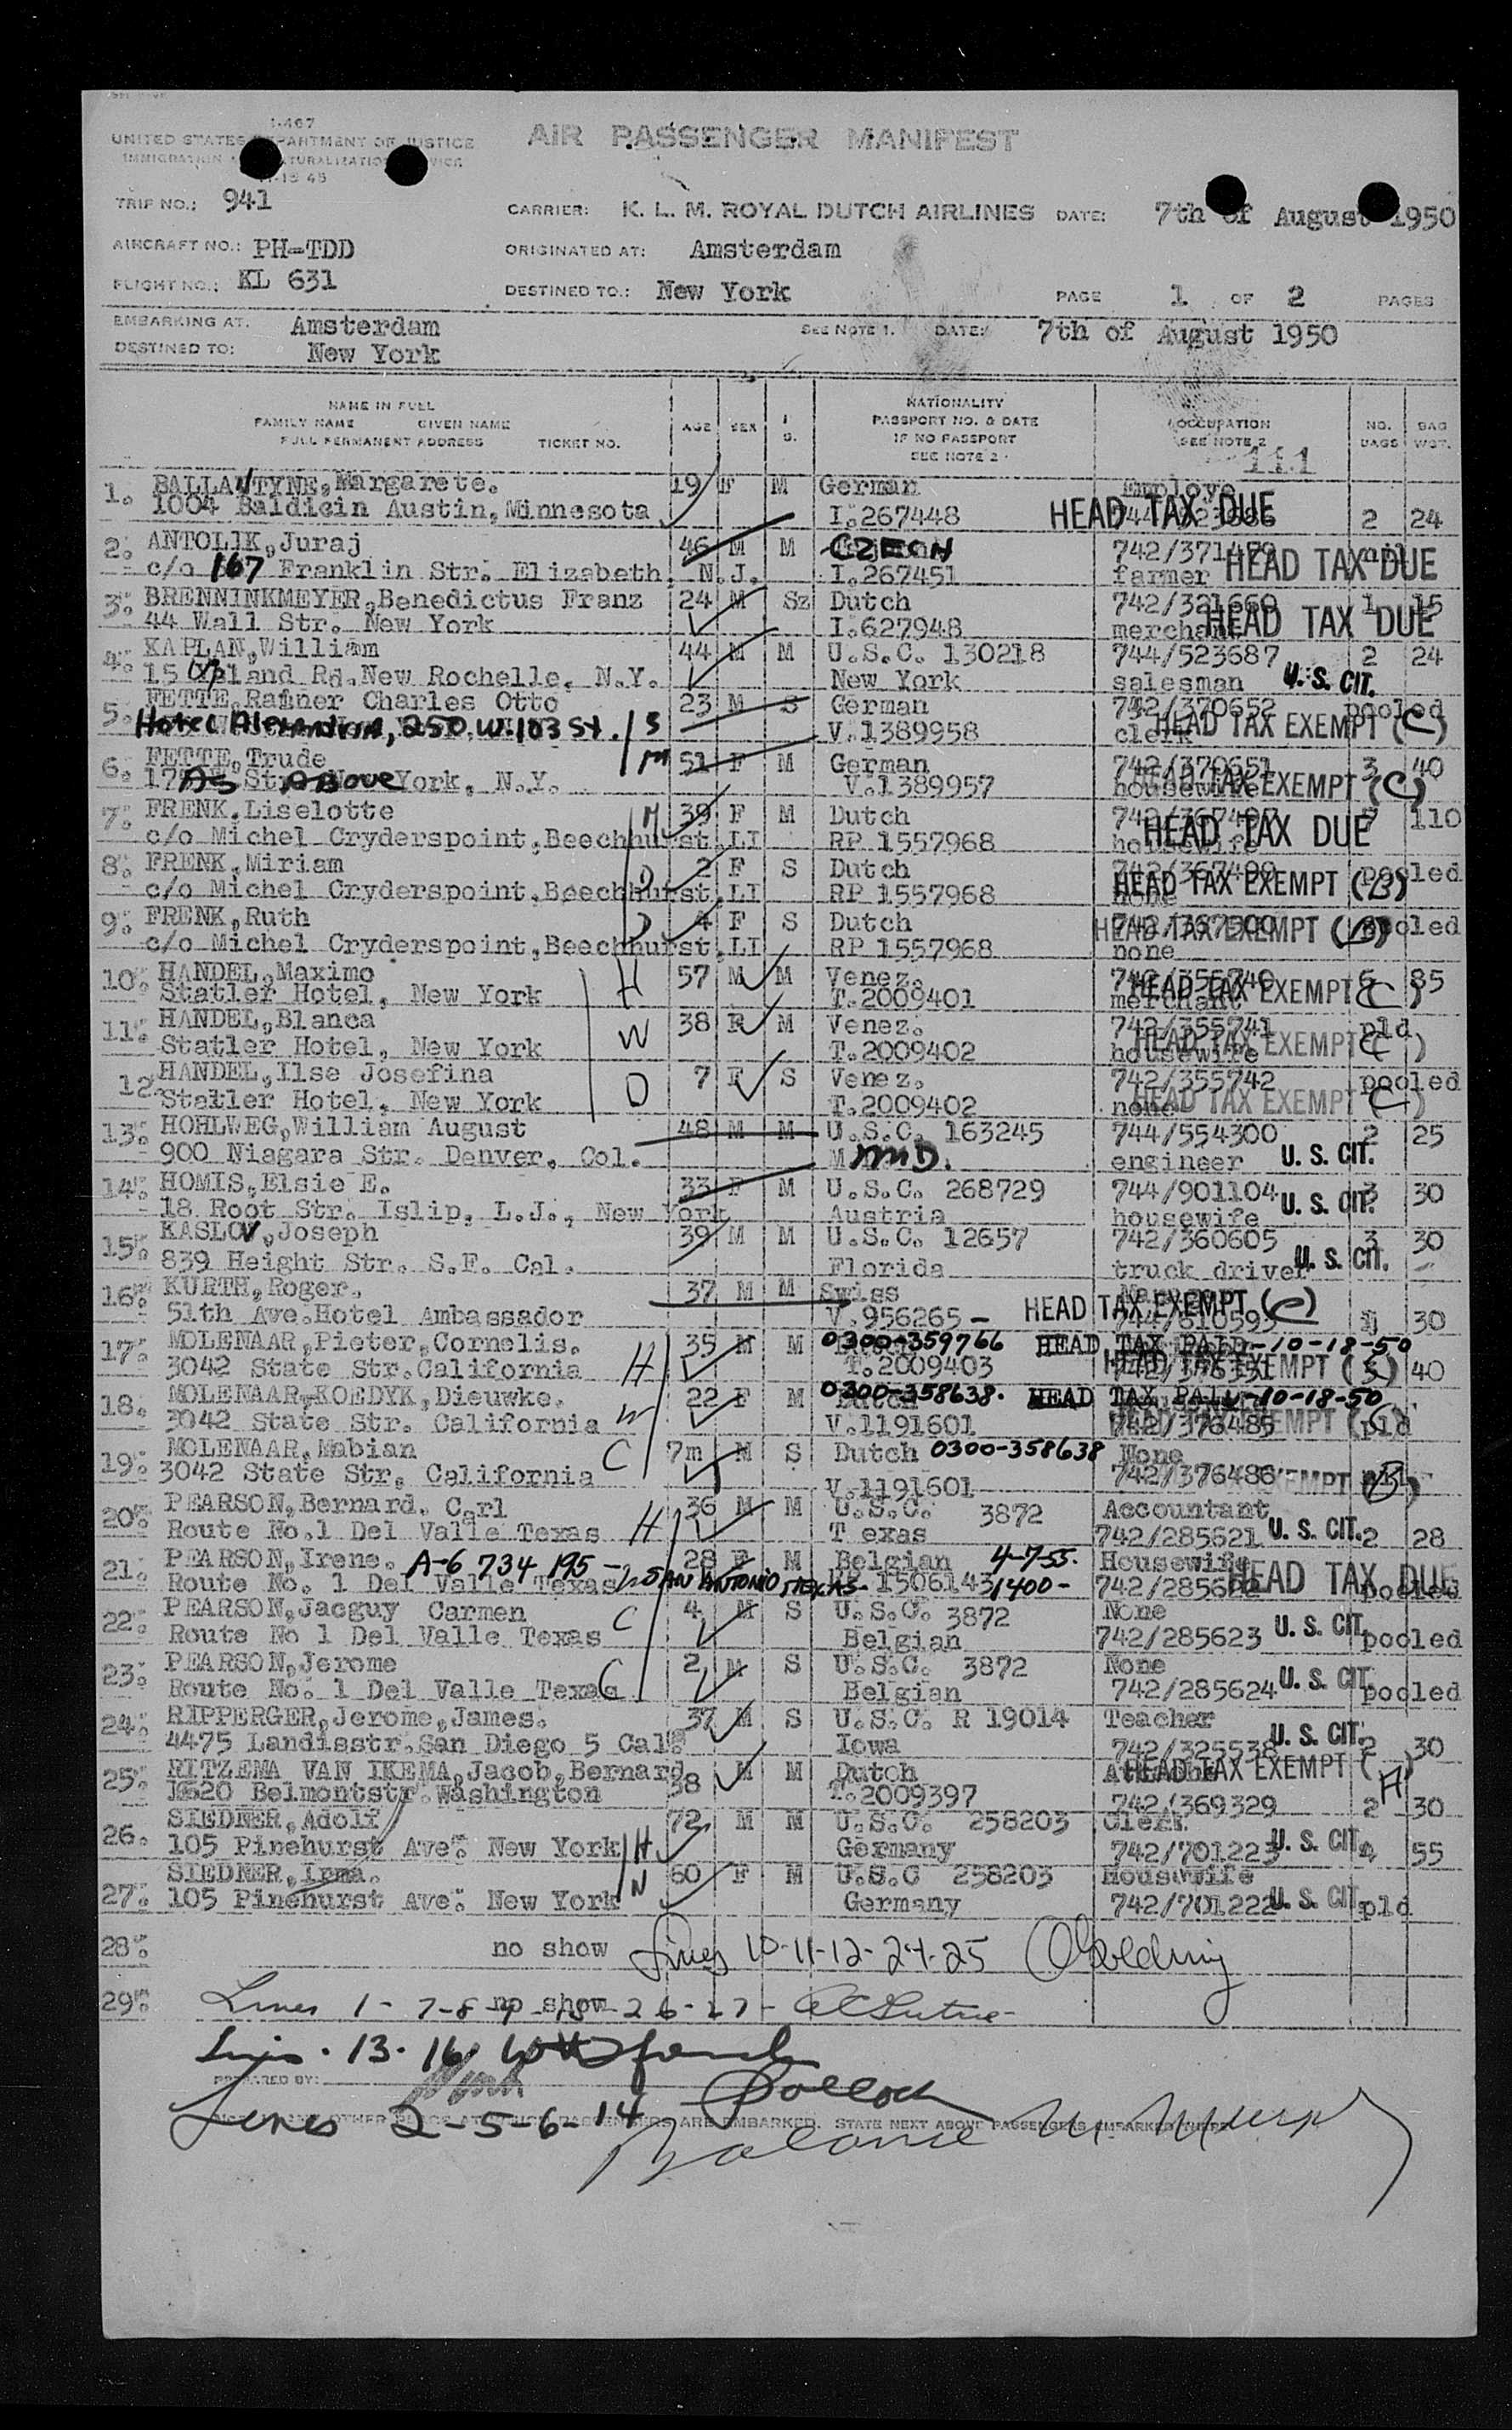 I-467
UNITED STATES DEPARTMENT OF JUSTICE
IMMIGRATION NATURALIZATION SERVICE
AIR PASSENGER MANIFEST
TRIP NO.: 941
CARRIER: K. L. M. ROYAL DUTCH AIRLINES DATE: 7th of August 1950
AIRCRAFT NO.: PH-TDD
ORIGINATED AT: Amsterdam
FLIGHT NO.: KL 631
DESTINED TO.: New York
PAGE 1 OF 2 PAGES
EMBARKING AT. Amsterdam
SEE NOTE 1. DATE: 7th of August 1950
DESTINED TO: New York
NAME IN FULL
FAMILY NAME GIVEN NAME
FULL PERMANENT ADDRESS TICKET NO.
AGE SEX
NATIONALITY
PASSPORT NO. & DATE
IF NO PASSPORT
SEE NOTE 2
OCCUPATION
SEE NOTE 2
NO. BAGS
BAG WGT.
1. BALLANTYNE, Margarete. 19 F M German
1004 Baldicin Austin, Minnesota I.267448 HEAD TAX DUE 2 24
2. ANTOLIK, Juraj 46 M M CZECH
c/o 167 Franklin Str. Elizabeth. N.J. I.267451 farmer HEAD TAX DUE
3. BRENNINKMEYER, Benedictus Franz 24 M Sz Dutch 742/321660 1 15
44 Wall Str. New York I.627948 merchant HEAD TAX DUE
4. KAPLAN, William 44 M M U.S.C. 130218 744/523687 2 24
15 Upland Rd. New Rochelle, N.Y. New York salesman U.S. CIT.
5. FETTE, Rainer Charles Otto 23 M S German 742/370652 pooled
Hotel Alexandria, 250 W. 103 St. S V.1389958 clerk HEAD TAX EXEMPT (C)
6. FETTE, Trude M 51 F M German 742/370651 3 40
As Above York, N.Y. V.1389957 housewife HEAD TAX EXEMPT (C)
7. FRENK, Liselotte M 39 F M Dutch 110
c/o Michel Cryderspoint, Beechhurst, LI RP 1557968 housewife HEAD TAX DUE
8. FRENK, Miriam D 2 F S Dutch pooled
c/o Michel Cryderspoint, Beechhurst, LI RP 1557968 none HEAD TAX EXEMPT (B)
9. FRENK, Ruth D 4 F S Dutch pooled
c/o Michel Cryderspoint, Beechhurst, LI RP 1557968 none HEAD TAX EXEMPT (B)
10. HANDEL, Maximo H 57 M M Venez. 742/355740 6 85
Statler Hotel, New York T.2009401 merchant HEAD TAX EXEMPT (C)
11. HANDEL, Blanca W 38 F M Venez. 742/355741 pld
Statler Hotel, New York T.2009402 housewife HEAD TAX EXEMPT (C)
12. HANDEL, Ilse Josefina D 7 F S Venez. 742/355742 pooled
Statler Hotel, New York T.2009402 none HEAD TAX EXEMPT (C)
13. HOHLWEG, William August 48 M M U.S.C. 163245 744/554300 2 25
900 Niagara Str. Denver, Col. MD. engineer U. S. CIT.
14. HOMIS, Elsie E. 33 F M U.S.C. 268729 744/901104 3 30
18 Root Str. Islip, L.J., New York Austria housewife U. S. CIT.
15. KASLOV, Joseph 39 M M U.S.C. 12657 742/360605 3 30
839 Height Str. S.F. Cal. Florida truck driver U. S. CIT.
16. KURTH, Roger. 37 M M Swiss
51th Ave. Hotel Ambassador V.956265 HEAD TAX EXEMPT (C) 30
17. MOLENAAR, Pieter, Cornelis. 35 M M 0300-359766 HEAD TAX PAID-10-18-50
3042 State Str. California H T.2009403 HEAD TAX EXEMPT 40
18. MOLENAAR-KOEDYK, Dieuwke. 22 F M Dutch 0300-358638. HEAD TAX PAID-10-18-50
3042 State Str. California W V.1191601 742/376485 EXEMPT pld
19. MOLENAAR, Mabian C 7m M S Dutch 0300-358638 None
3042 State Str. California V.1191601 742/376486 EXEMPT (B)
20. PEARSON, Bernard. Carl 36 M M U.S.C. 3872 Accountant
Route No.1 Del Valle Texas H Texas 742/285621 U. S. CIT. 2 28
21. PEARSON, Irene. A-6 734 195 - 28 F M Belgian 4-7-55. Housewife
Route No. 1 Del Valle Texas SAN ANTONIO, TEXAS- 1506143 1400- 742/285622 HEAD TAX DUE pooled
22. PEARSON, Jacguy Carmen C 4 M S U.S.C. 3872 None
Route No 1 Del Valle Texas Belgian 742/285623 U. S. CIT. pooled
23. PEARSON, Jerome C 2 M S U.S.C. 3872 None
Route No. 1 Del Valle Texas Belgian 742/285624 U. S. CIT. pooled
24. RIPPERGER, Jerome, James. 37 M S U.S.C. R 19014 Teacher
4475 Landisstr. San Diego 5 Cal. Iowa 742/325538 U. S. CIT. 2 30
25. RITZEMA VAN IKEMA, Jacob, Bernard 38 M M Dutch HEAD TAX EXEMPT (A)
1620 Belmontstr. Washington T.2009397 742/369329 2 30
26. SIEDNER, Adolf 72 M M U.S.C. 258203 Clerk
105 Pinehurst Ave. New York H Germany 742/701223 U. S. CIT. 4 55
27. SIEDNER, Irma. 60 F M U.S.C 258203 Housewife
105 Pinehurst Ave. New York Germany 742/701222 U. S. CIT. pld
28. no show Lines 10-11-12-24-25 Golding
29. no show Lines 1-7-8-9 26-27-
Lines. 13. 16
PREPARED BY:
Lines 2-5-6-14 Pollock
ARE EMBARKED. STATE NEXT ABOVE PASSENGERS EMBARKED THERE
Balance M. Murphy